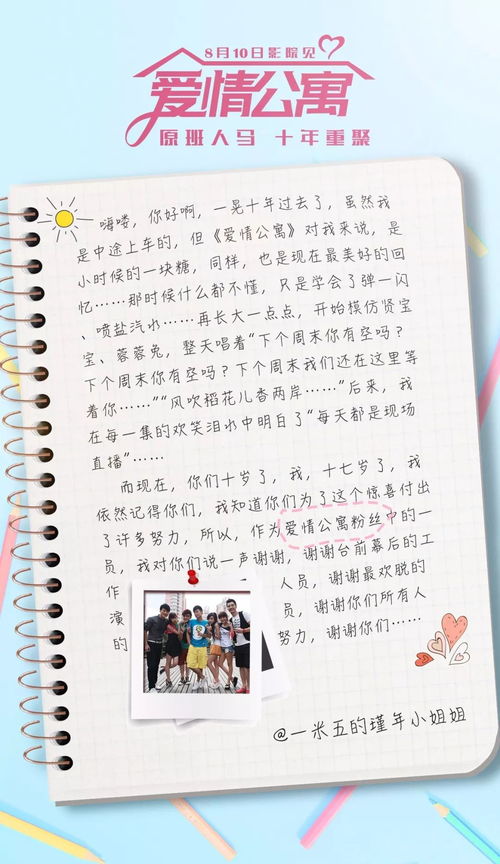 8月10日影院见
爱情公寓
原班人马 十年重聚
嗨喽，你好啊，一晃十年过去了，虽然我
是中途上车的，但《爱情公寓》对我来说，是
小时候的一块糖，同样，也是现在最美好的回
忆……那时候什么都不懂，只是学会了弹一闪
、喷盐汽水……再长大一点点，开始模仿贤宝
宝、蓉蓉兔，整天唱着“下个周末你有空吗？
下个周末你有空吗？下个周末我们还在这里等
着你……”“风吹稻花儿香两岸……”后来，我
在每一集的欢笑泪水中明白了“每天都是现场
直播”……
而现在，你们十岁了，我，十七岁了，我
依然记得你们，我知道你们为了这个惊喜付出
了许多努力，所以，作为爱情公寓粉丝中的一
员，我对你们说一声谢谢，谢谢台前幕后的工
作 人员，谢谢最欢脱的
演 员，谢谢你们所有人
的 努力，谢谢你们……
@一米五的瑾年小姐姐